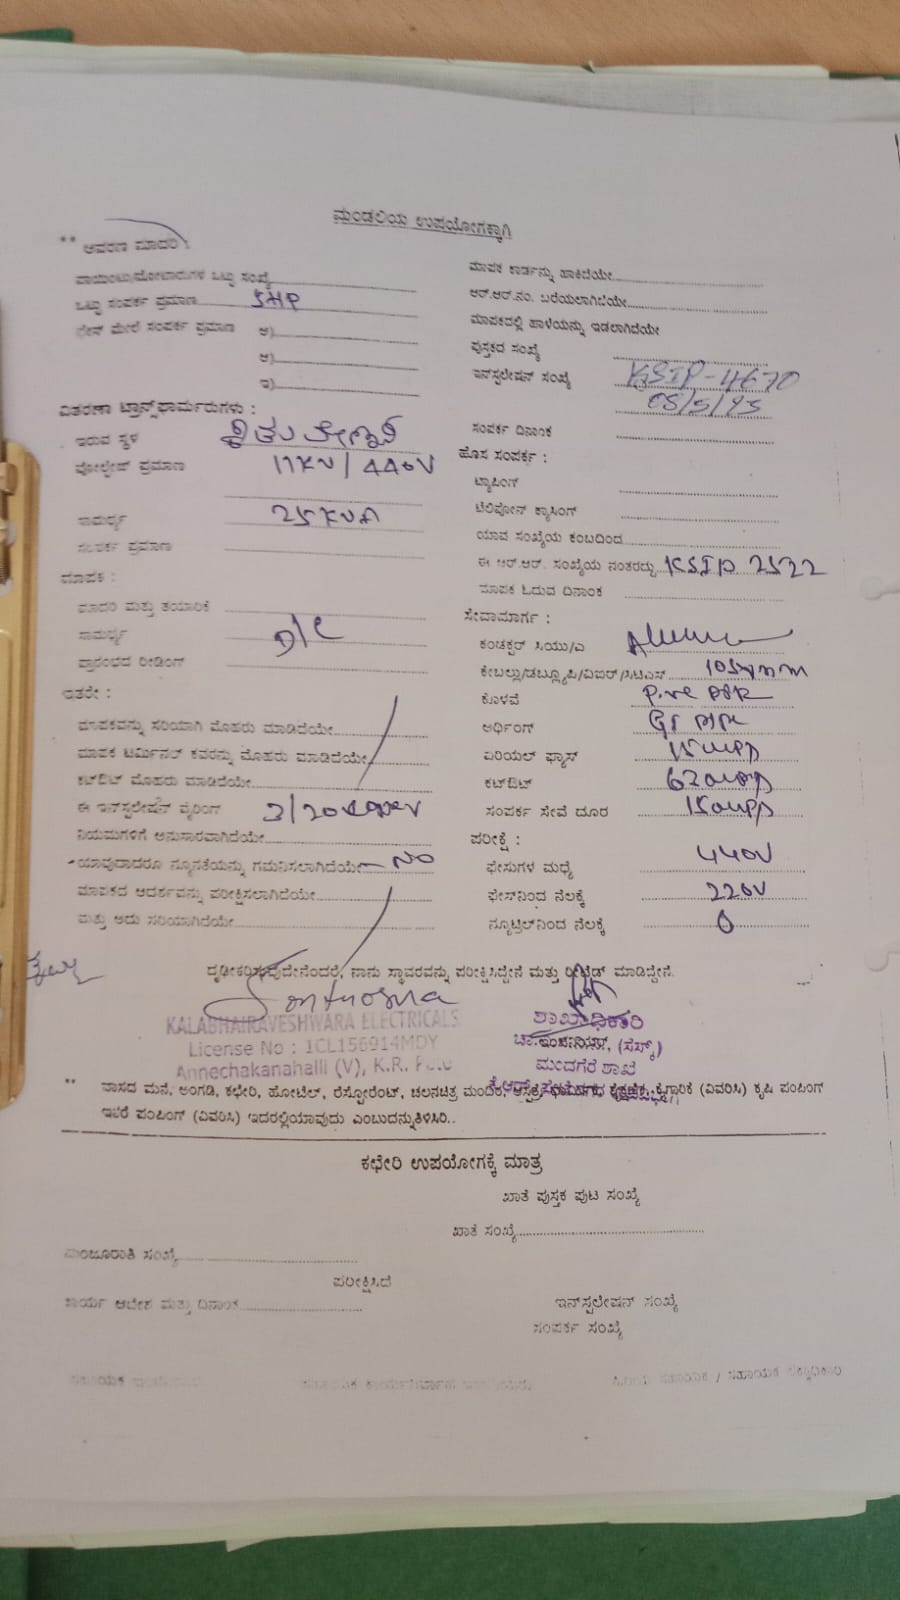 ಮಂಡಲಿಯ ಉಪಯೋಗಕ್ಕಾಗಿ
** ಆವರಣ ಮಾದರಿ :
ಪಾಯಿಂಟ್ಸು/ಮೋಟಾರುಗಳ ಒಟ್ಟು ಸಂಖ್ಯೆ
ಒಟ್ಟು ಸಂಪರ್ಕ ಪ್ರಮಾಣ 5HP
ಮೇಲೆ ಸಂಪರ್ಕ ಪ್ರಮಾಣ ಅ)
ಆ)
ಇ)
ವಿತರಣಾ ಟ್ರಾನ್ಸ್‌ಫಾರ್ಮರುಗಳು :
ಇರುವ ಸ್ಥಳ
ವೋಲ್ಟೇಜ್ ಪ್ರಮಾಣ 11KV / 440V
ಸಾಮರ್ಥ್ಯ 25KVA
ಸಂಪರ್ಕ ಪ್ರಮಾಣ
ಮಾಪಕ :
ಮಾದರಿ ಮತ್ತು ತಯಾರಿಕೆ
ಸಾಮರ್ಥ್ಯ D/C
ಪ್ರಾರಂಭದ ರೀಡಿಂಗ್
ಇತರೇ :
ಮಾಪಕವನ್ನು ಸರಿಯಾಗಿ ಮೊಹರು ಮಾಡಿದೆಯೇ
ಮಾಪಕ ಟರ್ಮಿನಲ್ ಕವರನ್ನು ಮೊಹರು ಮಾಡಿದೆಯೇ
ಕಟ್‌ಔಟ್ ಮೊಹರು ಮಾಡಿದೆಯೇ
ಈ ಇನ್‌ಸ್ಟಲೇಷನ್ ವೈರಿಂಗ್ 3/20
ನಿಯಮಗಳಿಗೆ ಅನುಸಾರವಾಗಿದೆಯೇ
ಯಾವುದಾದರೂ ನ್ಯೂನತೆಯನ್ನು ಗಮನಿಸಲಾಗಿದೆಯೇ NO
ಮಾಪಕದ ಆದರ್ಶವನ್ನು ಪರೀಕ್ಷಿಸಲಾಗಿದೆಯೇ
ಮತ್ತು ಅದು ಸರಿಯಾಗಿದೆಯೇ
ಮಾಪಕ ಕಾರ್ಡನ್ನು ಹಾಕಿದೆಯೇ
ಆರ್.ಆರ್.ನಂ. ಬರೆಯಲಾಗಿದೆಯೇ
ಮಾಪಕದಲ್ಲಿ ಹಾಳೆಯನ್ನು ಇಡಲಾಗಿದೆಯೇ
ಪುಸ್ತಕದ ಸಂಖ್ಯೆ
ಇನ್‌ಸ್ಟಲೇಷನ್ ಸಂಖ್ಯೆ KSIP-4670
08/5/93
ಸಂಪರ್ಕ ದಿನಾಂಕ
ಹೊಸ ಸಂಪರ್ಕ :
ಟ್ಯಾಪಿಂಗ್
ಟೆಲಿಫೋನ್ ಕ್ರಾಸಿಂಗ್
ಯಾವ ಸಂಖ್ಯೆಯ ಕಂಬದಿಂದ
ಈ ಆರ್.ಆರ್. ಸಂಖ್ಯೆಯ ನಂತರದ್ದು KSIP 2522
ಮಾಪಕ ಓದುವ ದಿನಾಂಕ
ಸೇವಾಮಾರ್ಗ :
ಕಂಡಕ್ಟರ್ ಸಿಯು/ಎ
ಕೇಬಲ್ಲು/ಡಬ್ಲ್ಯೂಪಿ/ವಿಐಆರ್/ಸಿಟಿಎಸ್ 10sqmm
ಕೊಳವೆ
ಅರ್ಥಿಂಗ್
ಏರಿಯಲ್ ಫ್ಯೂಸ್
ಕಟ್‌ಔಟ್
ಸಂಪರ್ಕ ಸೇವೆ ದೂರ
ಪರೀಕ್ಷೆ :
ಫೇಸುಗಳ ಮಧ್ಯೆ 440V
ಫೇಸ್‌ನಿಂದ ನೆಲಕ್ಕೆ 220V
ನ್ಯೂಟ್ರಲ್‌ನಿಂದ ನೆಲಕ್ಕೆ 0
ದೃಢೀಕರಿಸುವುದೇನೆಂದರೆ, ನಾನು ಸ್ಥಾವರವನ್ನು ಪರೀಕ್ಷಿಸಿದ್ದೇನೆ ಮತ್ತು ಮಾಡಿದ್ದೇನೆ.
KALABHAIRAVESHWARA ELECTRICALS
License No : 1CL156914MDY
Annechakanahalli (V), K.R. Pete
ಶಾಖಾಧಿಕಾರಿ
(ಸೆಸ್ಕ್)
ಮಂದಗೆರೆ ಶಾಖೆ
** ವಾಸದ ಮನೆ, ಅಂಗಡಿ, ಕಛೇರಿ, ಹೋಟೆಲ್, ರೆಸ್ಟೋರೆಂಟ್, ಚಲನಚಿತ್ರ ಮಂದಿರ, (ವಿವರಿಸಿ) ಕೃಷಿ ಪಂಪಿಂಗ್
ಇತರೆ ಪಂಪಿಂಗ್ (ವಿವರಿಸಿ) ಇದರಲ್ಲಿಯಾವುದು ಎಂಬುದನ್ನುತಿಳಿಸಿರಿ..
ಕಛೇರಿ ಉಪಯೋಗಕ್ಕೆ ಮಾತ್ರ
ಖಾತೆ ಪುಸ್ತಕ ಪುಟ ಸಂಖ್ಯೆ
ಖಾತೆ ಸಂಖ್ಯೆ
ಮಂಜೂರಾತಿ ಸಂಖ್ಯೆ
ಪರೀಕ್ಷಿಸಿದೆ
ಕಾರ್ಯ ಆದೇಶ ಮತ್ತು ದಿನಾಂಕ
ಇನ್‌ಸ್ಟಲೇಷನ್ ಸಂಖ್ಯೆ
ಸಂಪರ್ಕ ಸಂಖ್ಯೆ